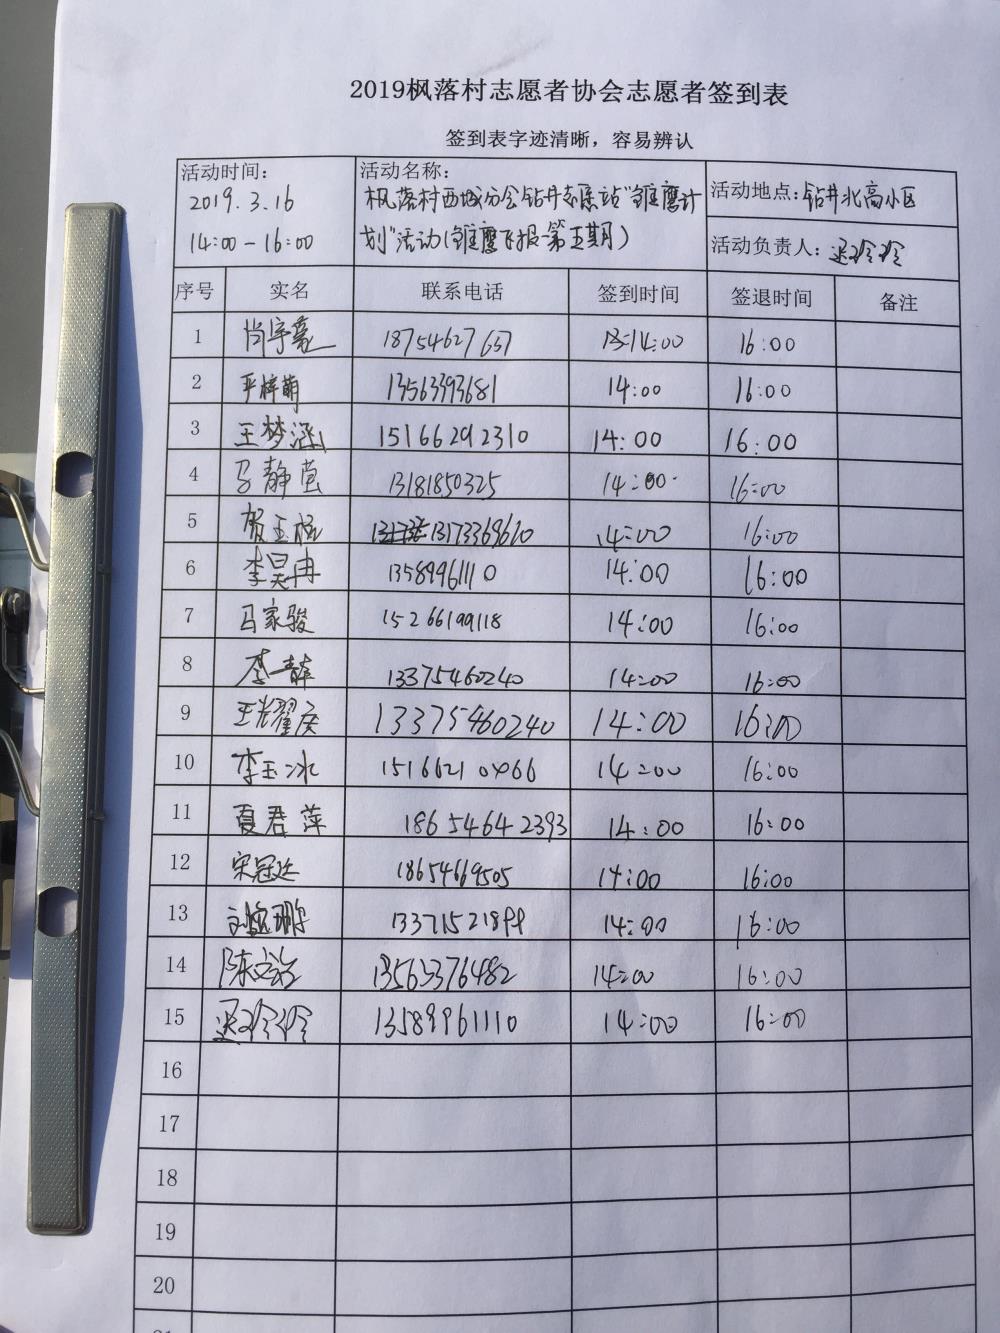 2019枫落村志愿者协会志愿者签到表
签到表字迹清晰，容易辨认
活动时间：
2019.3.16
14:00-16:00
活动名称：
枫落村西城分会钻井志愿站"雏鹰计
划"活动(雏鹰飞报第五期)
活动地点：钻井北高小区
活动负责人：玲玲
序号 实名 联系电话 签到时间 签退时间 备注
1 尚宇豪 18754627637 14:00 16:00
2 严梓萌 13563393681 14:00 16:00
3 王梦涵 15166292310 14:00 16:00
4 马静莹 13181850325 14:00 16:00
5 贺玉 13173369610 14:00 16:00
6 李昊冉 13589961110 14:00 16:00
7 马家骏 15266199118 14:00 16:00
8 李一 13375460240 14:00 16:00
9 王光耀 13375460240 14:00 16:00
10 李玉冰 15166210466 14:00 16:00
11 夏君萍 18654642393 14:00 16:00
12 宋冠达 18654669505 14:00 16:00
13 刘 鹏 14:00 16:00
14 陈 13563376482 14:00 16:00
15 玲玲 13589961110 14:00 16:00
16
17
18
19
20